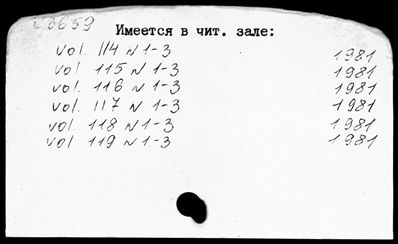 Имеется в чит. зале:
vol. 114 N 1-3 1981
vol. 115 N 1-3 1981
vol. 116 N 1-3 1981
vol. 117 N 1-3 1981
vol. 118 N 1-3 1981
vol. 119 N 1-3 1981